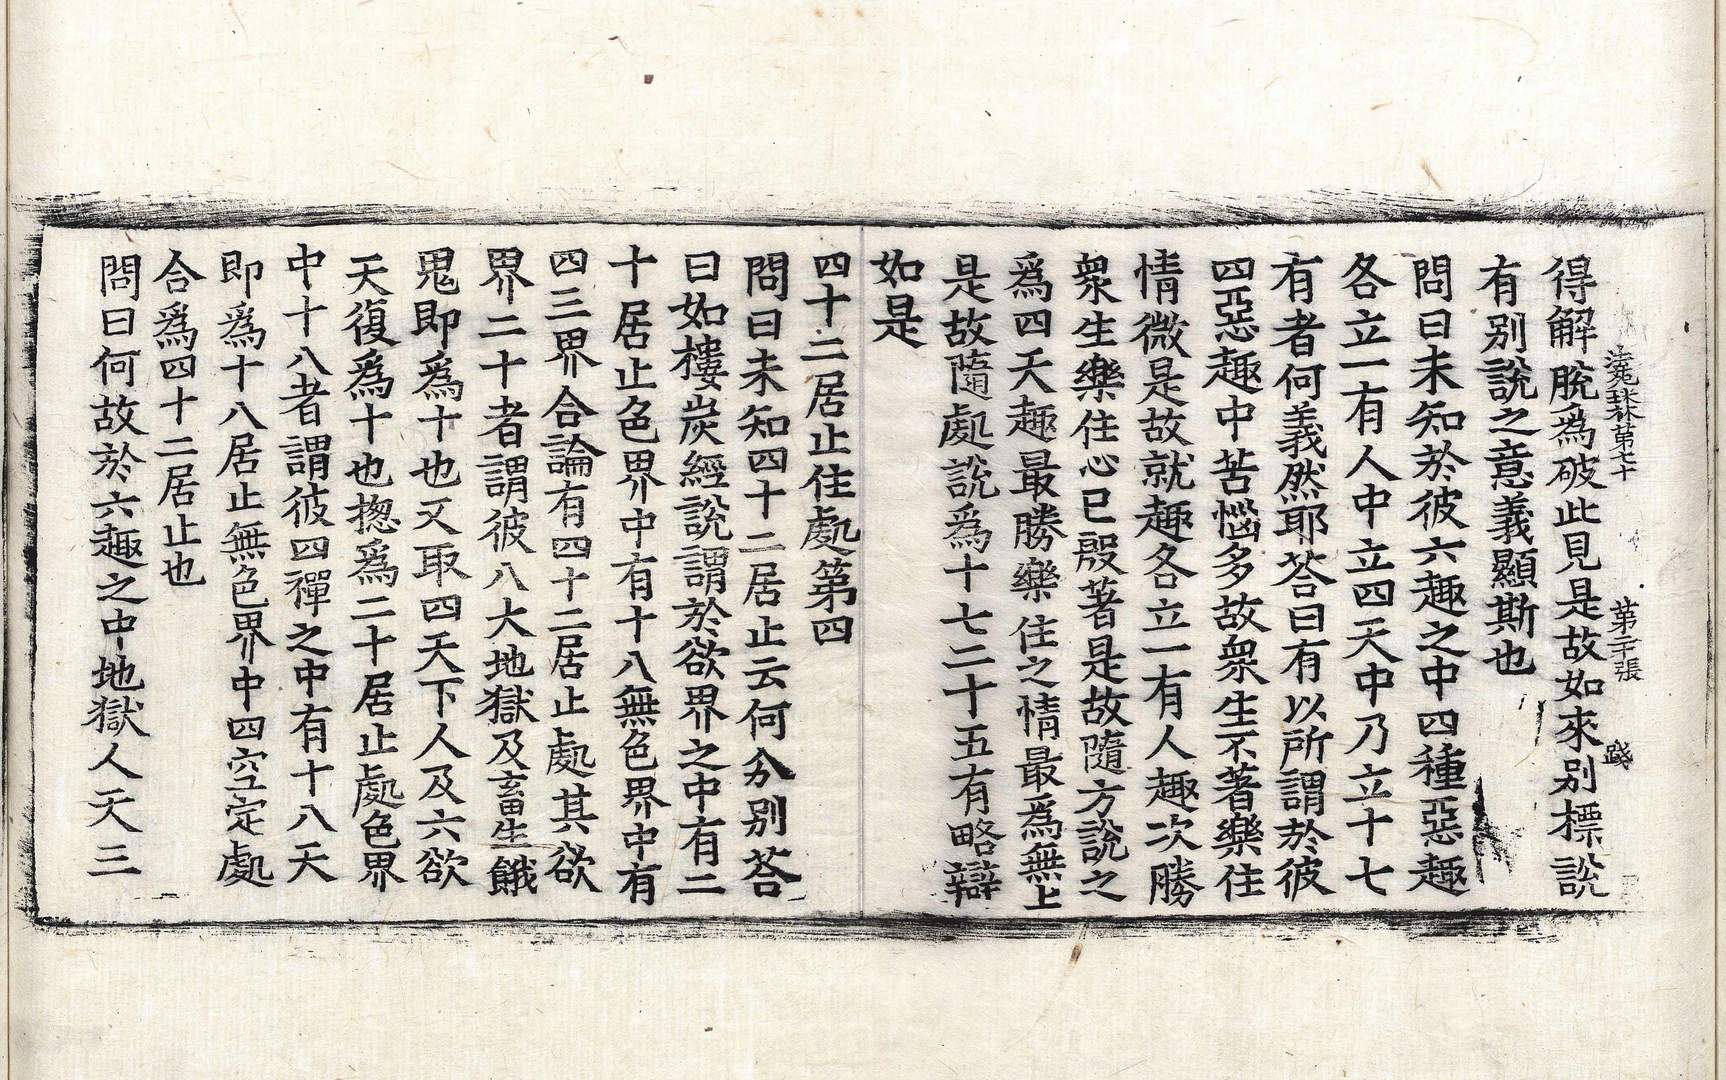 法苑珠林第七十 第二十張 踐
得解脫爲破此見是故如來別標說
有別說之意義顯斯也
問曰未知於彼六趣之中四種惡趣
各立一有人中立四天中乃立十七
有者何義然耶答曰有以所謂於彼
四惡趣中苦惱多故衆生不著樂住
情微是故就趣各立一有人趣次勝
衆生樂住心已殷著是故隨方說之
爲四天趣最勝樂住之情最爲無上
是故隨處說爲十七二十五有略辯
如是
四十二居止住處第四
問曰未知四十二居止云何分別荅
曰如樓炭經說謂於欲界之中有二
十居止色界中有十八無色界中有
四三界合論有四十二居止處其欲
界二十者謂彼八大地獄及畜生餓
鬼即爲十也又取四天下人及六欲
天復爲十也揔爲二十居止處色界
中十八者謂彼四禪之中有十八天
即爲十八居止無色界中四空定處
合爲四十二居止也
問曰何故於六趣之中地獄人天三